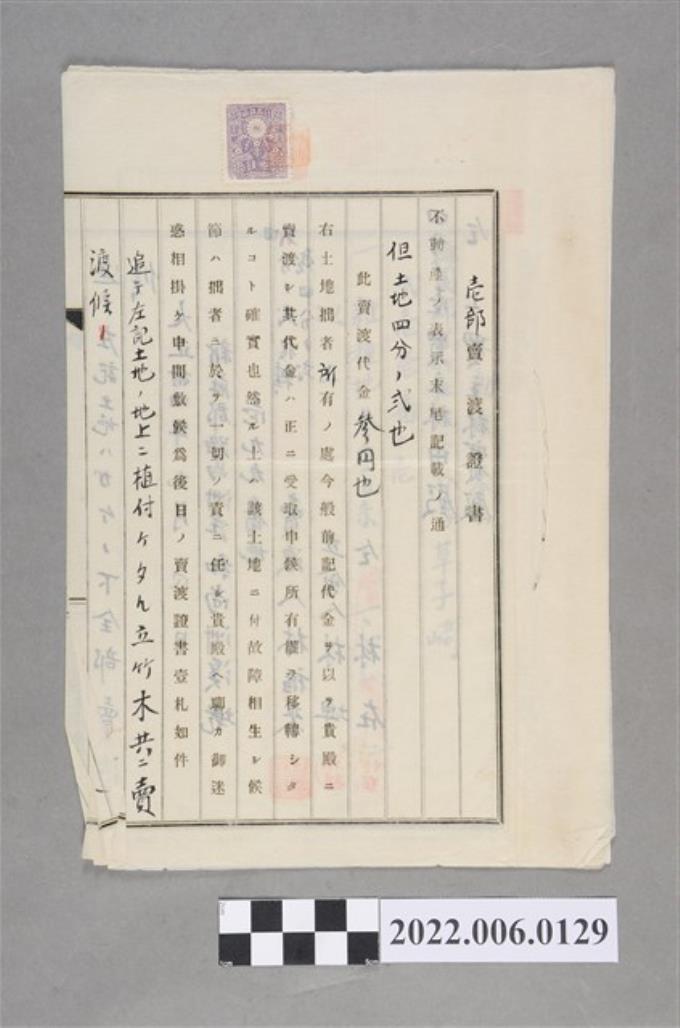 壱部賣渡證書
不動產ノ表示末尾記載ノ通
但土地四分ノ弐也
此賣渡代金參円也
右土地拙者所有ノ處今般前記代金ヲ以テ貴殿ニ
賣渡シ其代金ハ正ニ受取申候所有權ヲ移轉シタ
ルコト確實也然ル上ハ該土地ニ付故障相生シ候
節ハ拙者ニ於テ一切ノ責ニ任シ貴殿ヘ聊カ御迷
惑相掛ケ申間敷候為後日ノ賣渡證書壹札如件
追テ左記土地ノ地上ニ植付ケタル立竹木共ニ賣
渡候
2022.006.0129